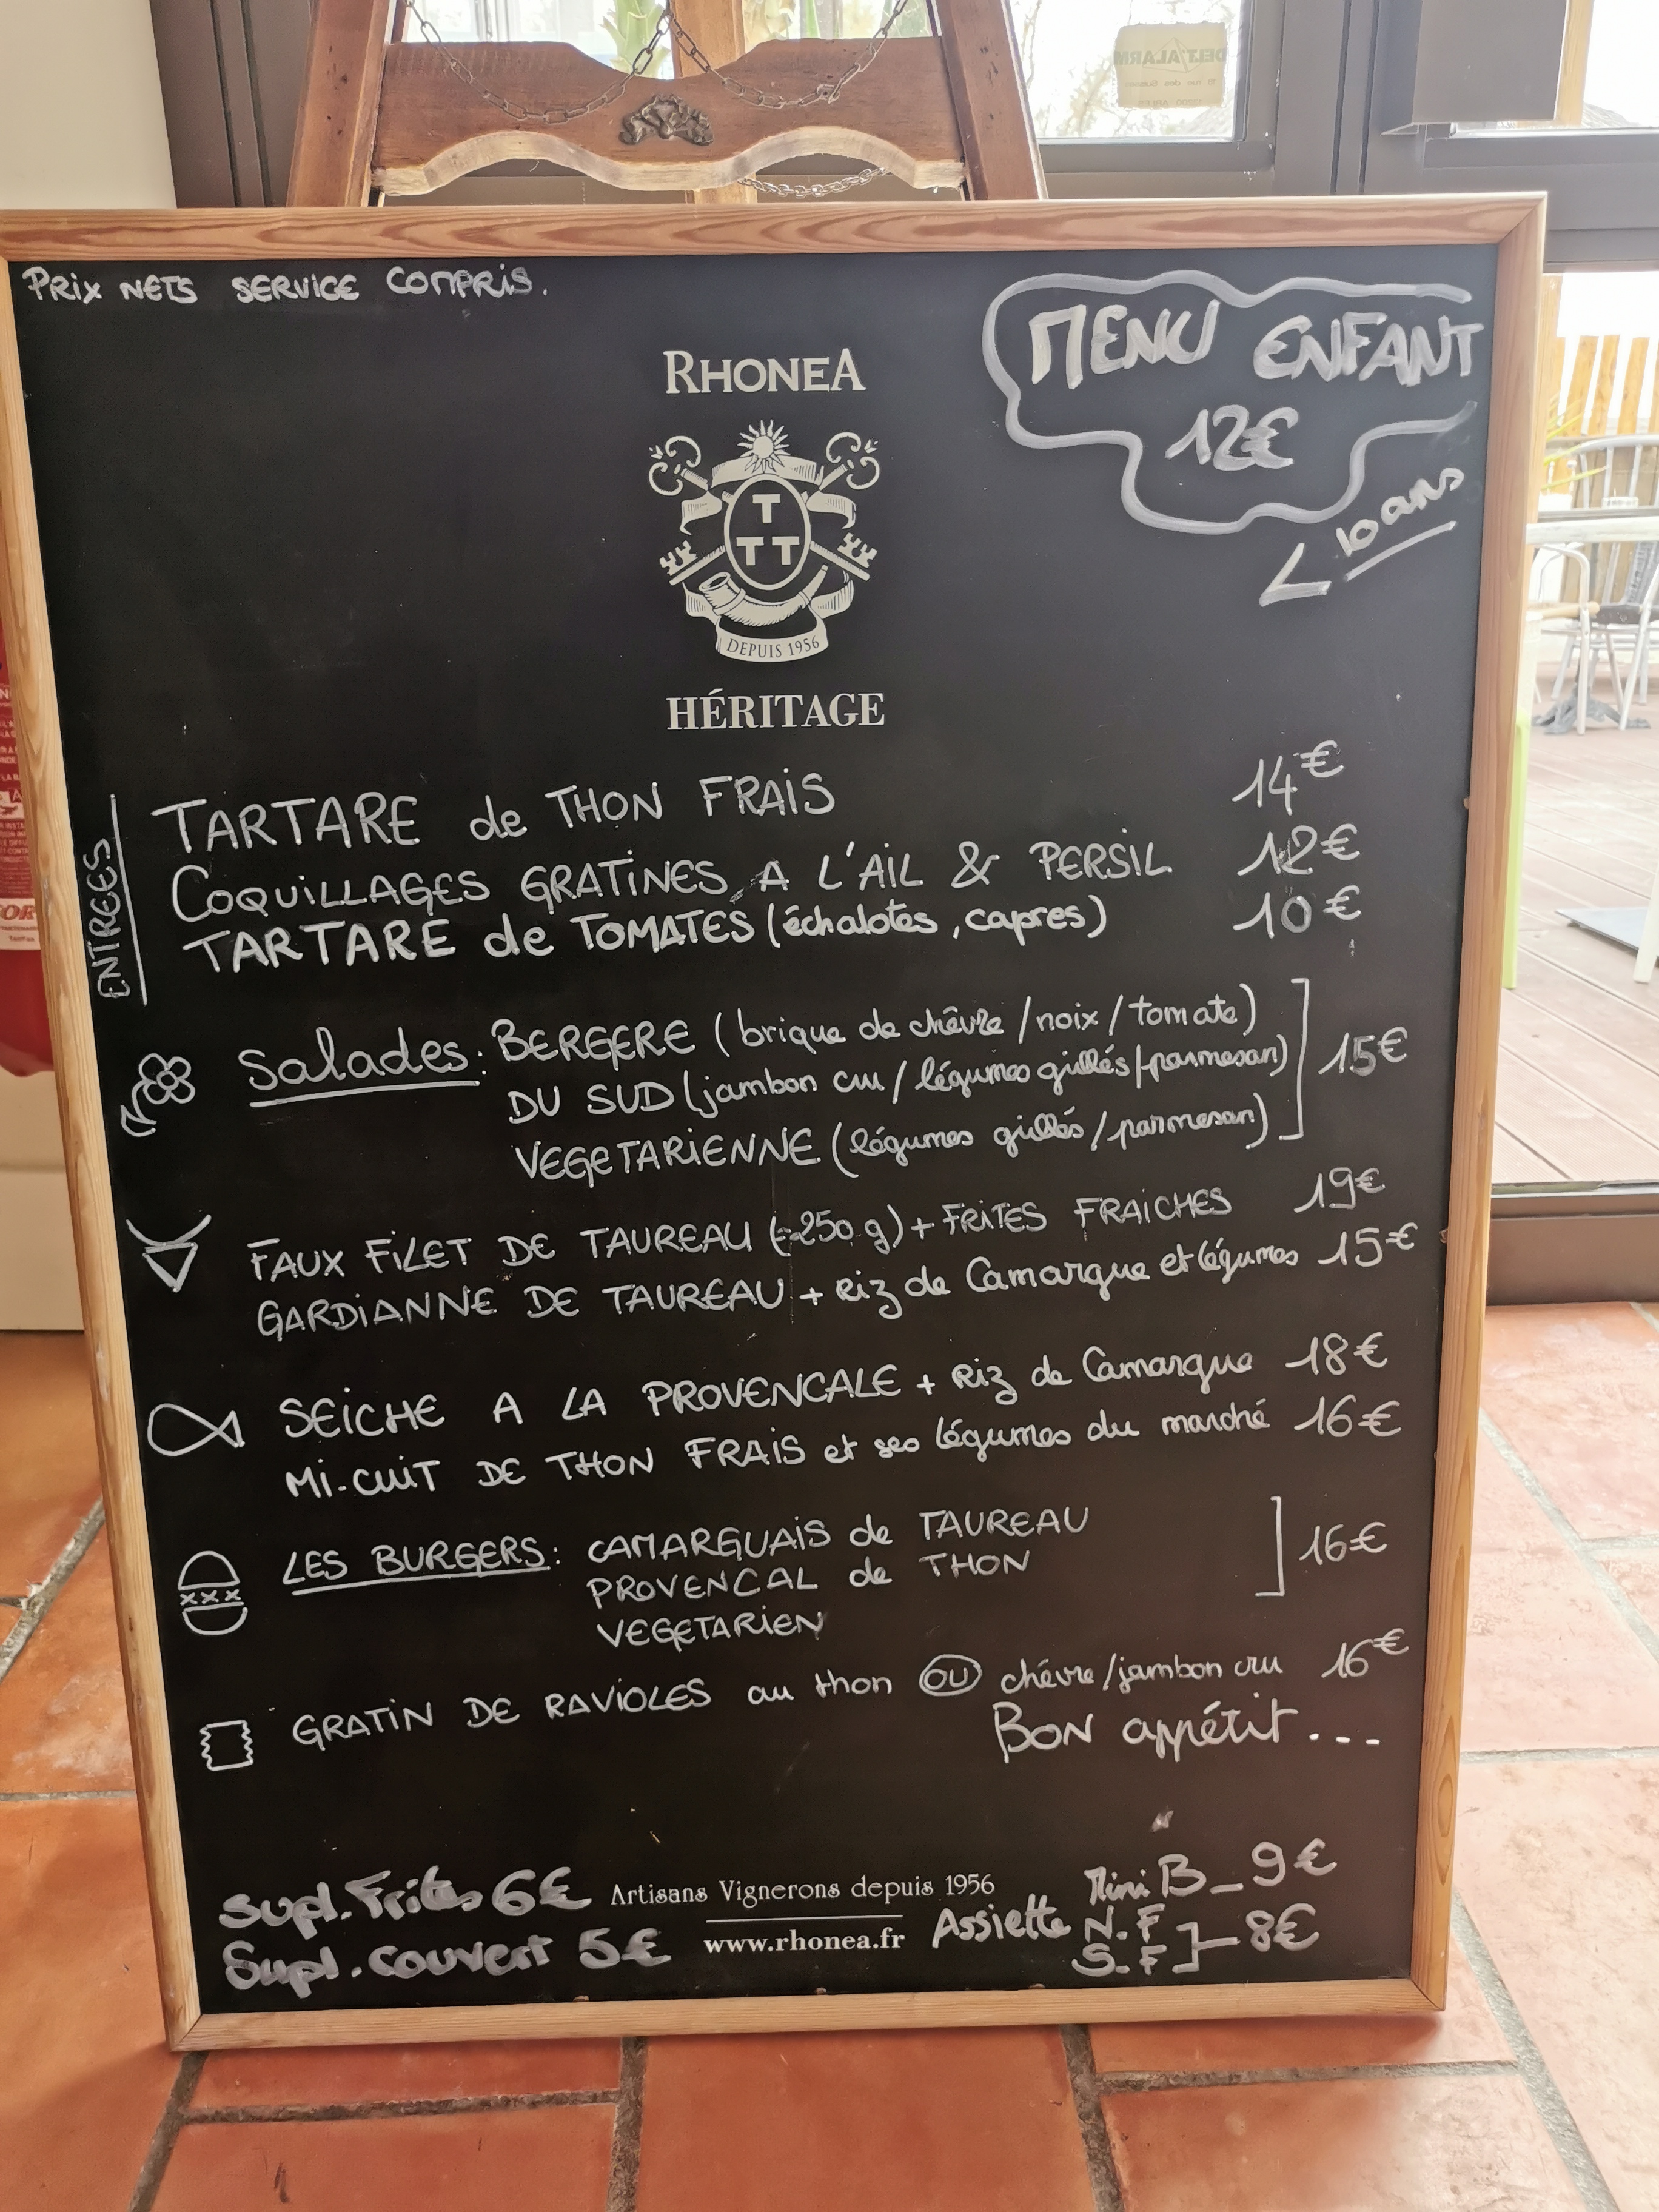 PRIX NETS SERVICE COMPRIS.
MENU ENFANT
12€
< 10 ans
RHONEA
T
TT
DEPUIS 1956
HÉRITAGE
ENTREES
TARTARE de THON FRAIS 14€
COQUILLAGES GRATINES A L'AIL & PERSIL 12€
TARTARE de TOMATES (échalotes, capres) 10€
Salades: BERGERE (brique de chêvre/noix/tomate)
DU SUD (jambon cru/légumes grillés/parmesan) 15€
VEGETARIENNE (légumes grillés/parmesan)
FAUX FILET DE TAUREAU (±250 g) + FRITES FRAICHES 19€
GARDIANNE DE TAUREAU + Riz de Camargue et légumes 15€
SEICHE A LA PROVENCALE + Riz de Camargue 18€
MI-CUIT DE THON FRAIS et ses légumes du marché 16€
LES BURGERS: CAMARGUAIS de TAUREAU
PROVENCAL de THON 16€
VEGETARIEN
GRATIN DE RAVIOLES au thon OU chévre/jambon cru 16€
BON appétit...
Supl. Frites 6€
Supl. Couvert 5€
Artisans Vignerons depuis 1956
www.rhonea.fr
Mini B_9€
Assiette N.F
S.F 8€
DELT'ALARM